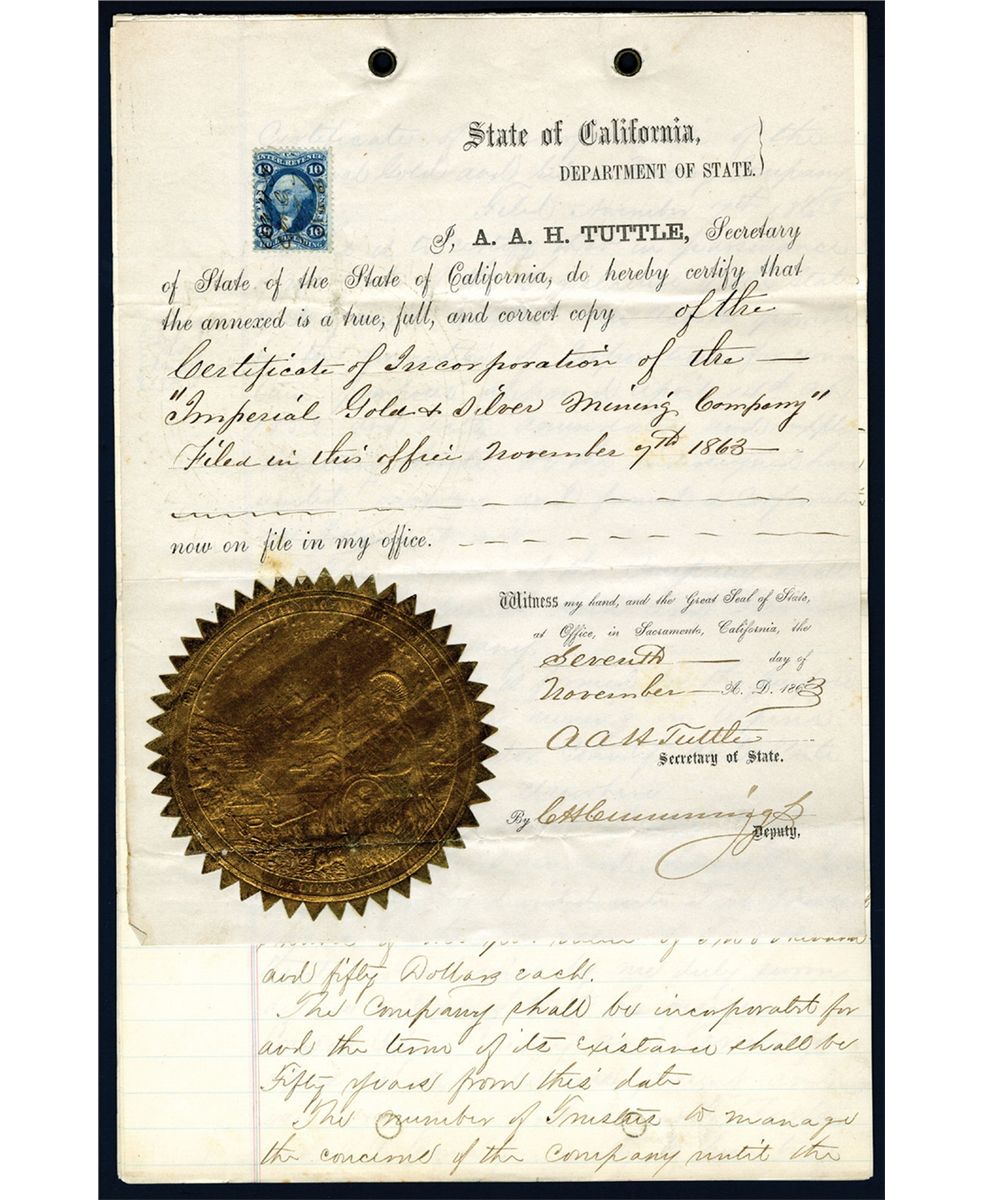 State of California,
DEPARTMENT OF STATE.
INTER. REVENUE
10 10
10 10
I, A. A. H. TUTTLE, Secretary
of State of the State of California, do hereby certify that
the annexed is a true, full, and correct copy of the
Certificate of Incorporation of the —
"Imperial Gold & Silver Mining Company"
Filed in this office November 7th 1863 —
now on file in my office.
Witness my hand, and the Great Seal of State,
at Office, in Sacramento, California, the
Seventh — day of
November — A. D. 1863
A A H Tuttle
Secretary of State.
By C H Cummings
Deputy,
CALIFORNIA
and fifty Dollars each.
The Company shall be incorporatd for
and the term of its existance shall be
Fifty years from this date
The number of Trustees to manage
the concerns of the Company until the